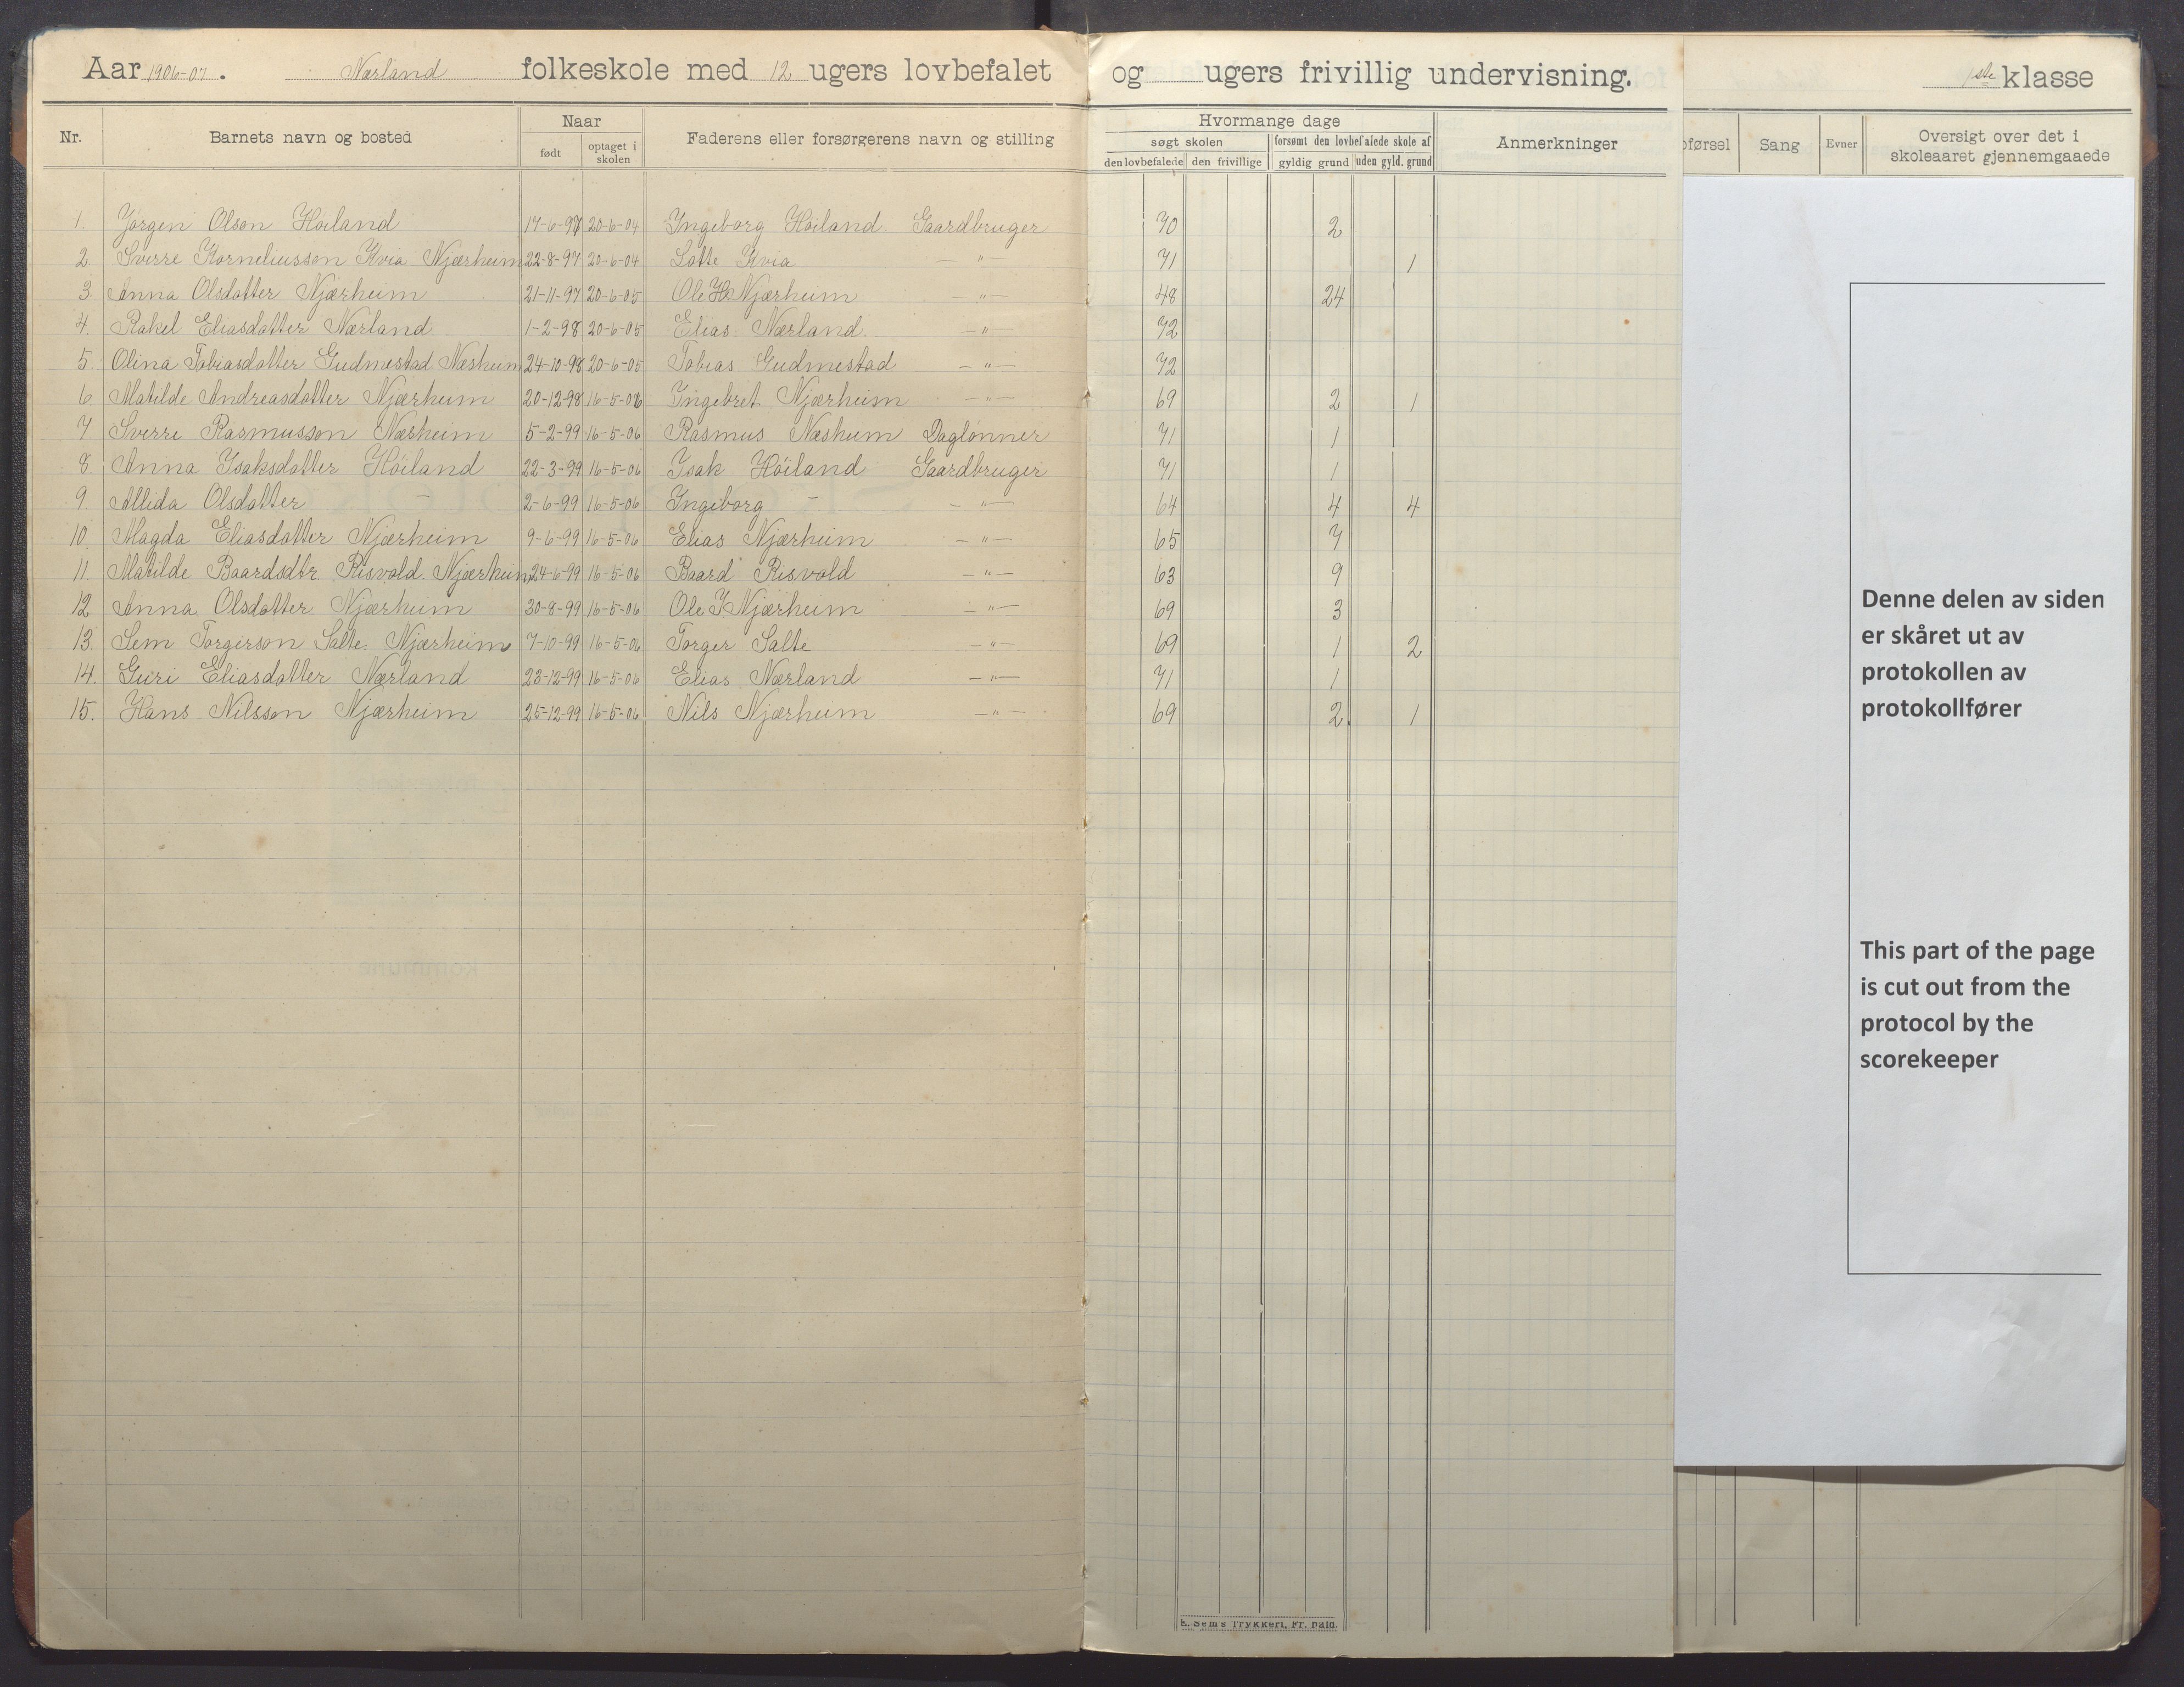 Aar 1906-07. Nærland folkeskole med 12 ugers lovbefalet og ugers frivillig undervisning. 1ste klasse
Nr. Barnets navn og bosted Naar født optaget i skolen Faderens eller forsørgerens navn og stilling Hvormange dage søgt skolen den lovbefalede den frivillige forsømt den lovbefalede skole af gyldig grund uden gyld. grund Anmerkninger
oførsel Sang Evner Oversigt over det i skoleaaret gjennemgaaede
1. Jørgen Olson Høiland 17-6-97 20-6-04 Ingeborg Høiland Gaardbruger 70 2
2 Sverre Korneliusson Kvia Njærheim 22-8-97 20-6-04 Lotte Kvia —"— 71 1
3 Anna Olsdatter Njærheim 21-11-97 20-6-05 Ole H. Njærheim —"— 48 24
4. Rakel Eliasdatter Nærland 1-2-98 20-6-05 Elias Nærland —"— 72
5. Olina Tobiasdatter Gudmestad Næsheim 24-10-98 20-6-05 Tobias Gudmestad —"— 72
6. Matilde Andreasdatter Njærheim 20-12-98 16-5-06 Ingebret Njærheim —"— 69 2 1
7 Sverre Rasmusson Næsheim 5-2-99 16-5-06 Rasmus Næsheim Daglønner 71 1
8. Anna Isaksdatter Høiland 22-3-99 16-5-06 Isak Høiland Gaardbruger 71 1
9. Allida Olsdatter — 2-6-99 16-5-06 Ingeborg — —"— 64 4 4
10. Magda Eliasdatter Njærheim 9-6-99 16-5-06 Elias Njærheim —"— 65 7
11. Matilde Baardsdtr Risvold Njærheim 24-6-99 16-5-06 Baard Risvold —"— 63 9
12 Anna Olsdatter Njærheim 30-8-99 16-5-06 Ole I Njærheim —"— 69 3
13. Sem Torgerson Salte Njærheim 7-10-99 16-5-06 Torger Salte —"— 69 1 2
14. Guri Eliasdatter Nærland 23-12-99 16-5-06 Elias Nærland —"— 71 1
15. Hans Nilsson Njærheim 25-12-99 16-5-06 Nils Njærheim —"— 69 2 1
Denne delen av siden
er skåret ut av
protokollen av
protokollfører
This part of the page
is cut out from the
protocol by the
scorekeeper
E. Sem's Trykkeri, Fr.hald.